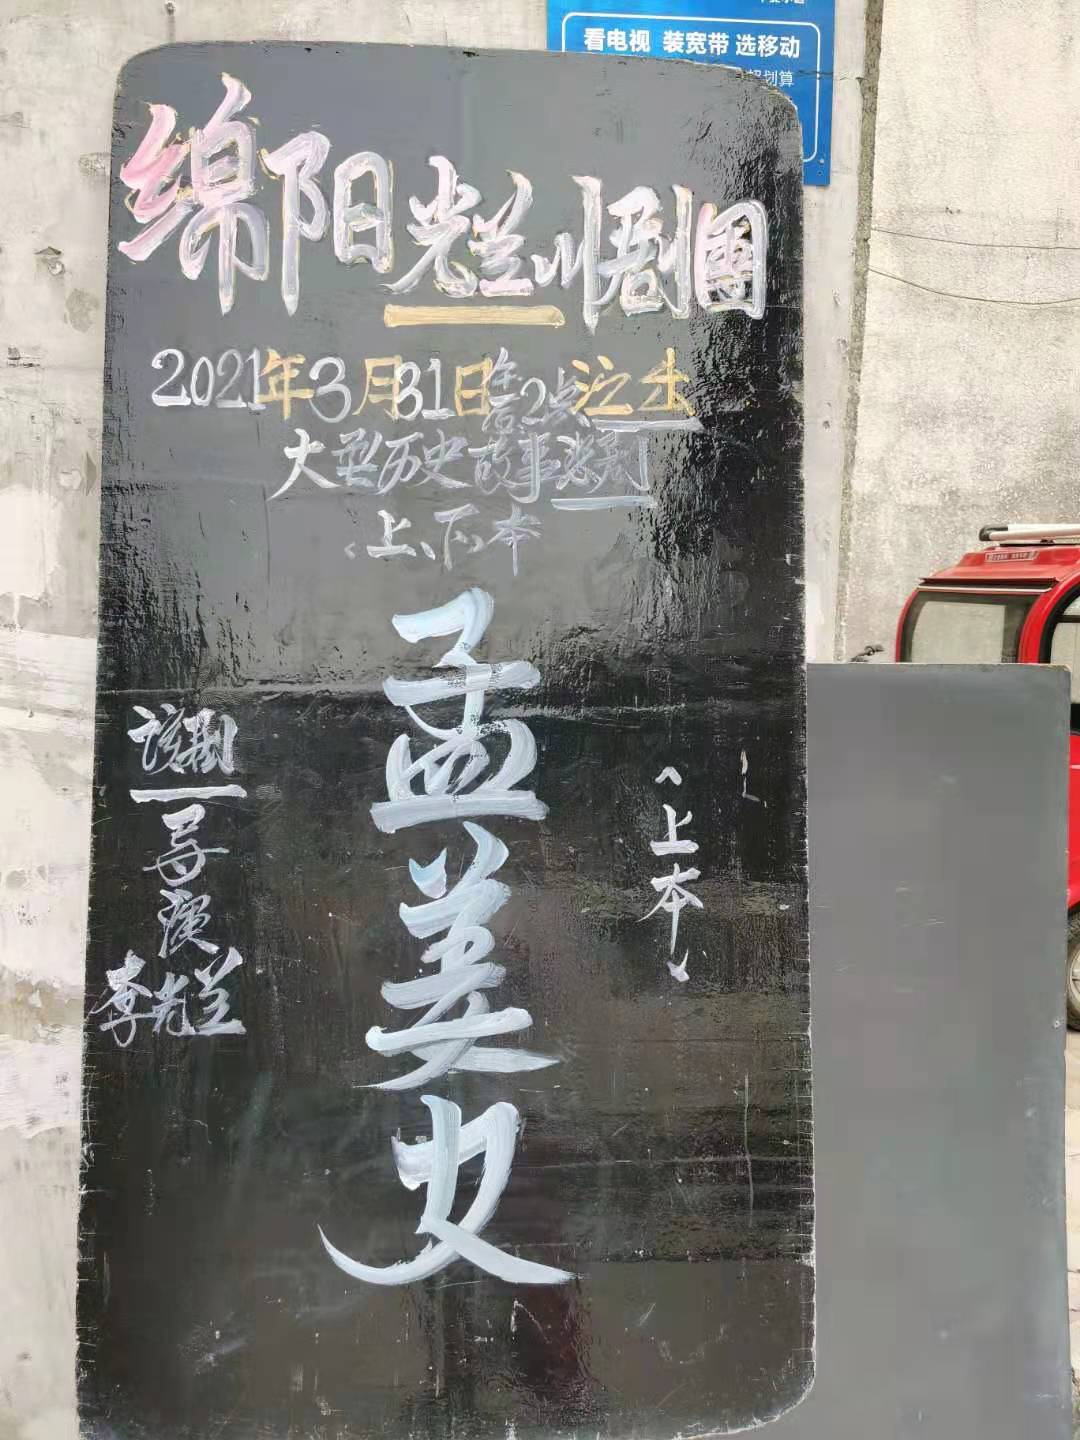 看电视 装宽带 选移动
绵阳光兰川剧團
2021年3月31日午后2点演出
大型历史故事悲剧
(上、下)本
孟姜女
(上本)
该剧
导演
李光兰